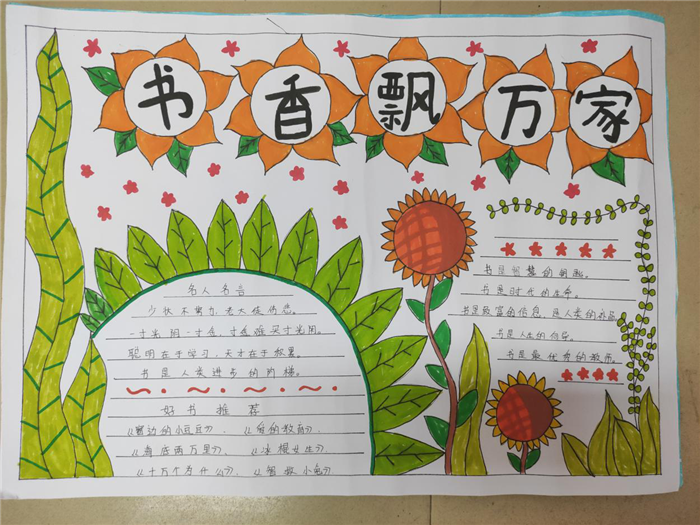 书香飘万家
名人名言
少壮不努力，老大徒伤悲。
一寸光阴一寸金，寸金难买寸光阴。
聪明在于学习，天才在于积累。
书是人类进步的阶梯。
好书推荐
《窗边的小豆豆》、《爱的教育》、
《海底两万里》、《冰棍女生》、
《十万个为什么》、
书是智慧的钥匙。
书是时代的生命。
书是致富的信息，是人类的
书是人生的向导。
书是最优秀的教师。